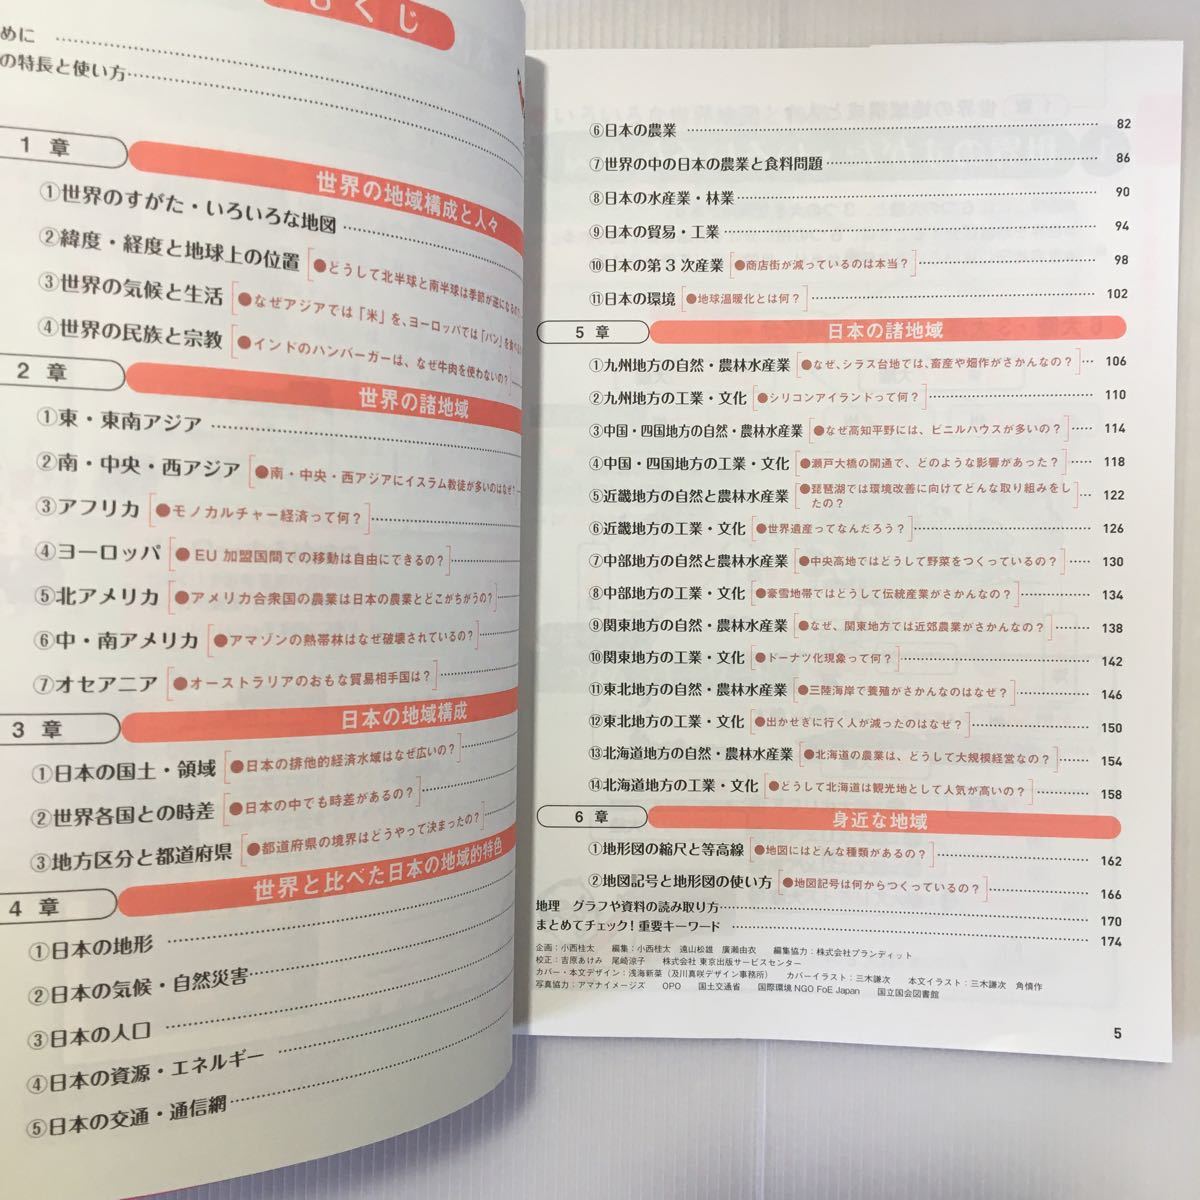 もくじ
めに
の特長と使い方
1 章 世界の地域構成と人々
①世界のすがた・いろいろな地図
②緯度・経度と地球上の位置 ●どうして北半球と南半球は季節が逆になるの
③世界の気候と生活 ●なぜアジアでは「米」を、ヨーロッパでは「パン」を食べ
④世界の民族と宗教 ●インドのハンバーガーは、なぜ牛肉を使わないの?
2 章 世界の諸地域
①東・東南アジア
②南・中央・西アジア ●南・中央・西アジアにイスラム教徒が多いのはなぜ?
③アフリカ ●モノカルチャー経済って何?
④ヨーロッパ ●EU 加盟国間での移動は自由にできるの?
⑤北アメリカ ●アメリカ合衆国の農業は日本の農業とどこがちがうの?
⑥中・南アメリカ ●アマゾンの熱帯林はなぜ破壊されているの?
⑦オセアニア ●オーストラリアのおもな貿易相手国は?
3 章 日本の地域構成
①日本の国土・領域 ●日本の排他的経済水域はなぜ広いの?
②世界各国との時差 ●日本の中でも時差があるの?
③地方区分と都道府県 ●都道府県の境界はどうやって決まったの?
4 章 世界と比べた日本の地域的特色
①日本の地形
②日本の気候・自然災害
③日本の人口
④日本の資源・エネルギー
⑤日本の交通・通信網
⑥日本の農業 82
⑦世界の中の日本の農業と食料問題 86
⑧日本の水産業・林業 90
⑨日本の貿易・工業 94
⑩日本の第3次産業 ●商店街が減っているのは本当? 98
⑪日本の環境 ●地球温暖化とは何? 102
5 章 日本の諸地域
①九州地方の自然・農林水産業 ●なぜ、シラス台地では、畜産や畑作がさかんなの? 106
②九州地方の工業・文化 ●シリコンアイランドって何? 110
③中国・四国地方の自然・農林水産業 ●なぜ高知平野には、ビニルハウスが多いの? 114
④中国・四国地方の工業・文化 ●瀬戸大橋の開通で、どのような影響があった? 118
⑤近畿地方の自然と農林水産業 ●琵琶湖では環境改善に向けてどんな取り組みをし
たの? 122
⑥近畿地方の工業・文化 ●世界遺産ってなんだろう? 126
⑦中部地方の自然と農林水産業 ●中央高地ではどうして野菜をつくっているの? 130
⑧中部地方の工業・文化 ●豪雪地帯ではどうして伝統産業がさかんなの? 134
⑨関東地方の自然・農林水産業 ●なぜ、関東地方では近郊農業がさかんなの? 138
⑩関東地方の工業・文化 ●ドーナツ化現象って何? 142
⑪東北地方の自然・農林水産業 ●三陸海岸で養殖がさかんなのはなぜ? 146
⑫東北地方の工業・文化 ●出かせぎに行く人が減ったのはなぜ? 150
⑬北海道地方の自然・農林水産業 ●北海道の農業は、どうして大規模経営なの? 154
⑭北海道地方の工業・文化 ●どうして北海道は観光地として人気が高いの? 158
6 章 身近な地域
①地形図の縮尺と等高線 ●地図にはどんな種類があるの? 162
②地図記号と地形図の使い方 ●地図記号は何からつくっているの? 166
地理 グラフや資料の読み取り方 170
まとめてチェック!重要キーワード 174
企画:小西桂太 編集:小西桂太 遠山松雄 廣瀬由衣 編集協力:株式会社プランディット
校正:吉原あけみ 尾崎涼子 株式会社 東京出版サービスセンター
カバー・本文デザイン:浅海新菜(及川真咲デザイン事務所) カバーイラスト:三木謙次 本文イラスト:三木謙次 角慎作
写真協力:アマナイメージズ OPO 国土交通省 国際環境 NGO FoE Japan 国立国会図書館
5